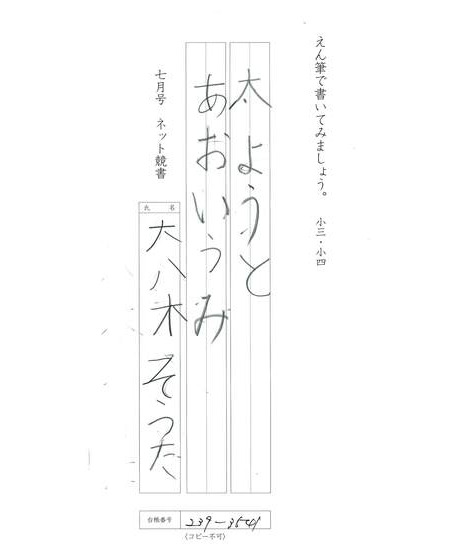 えん筆で書いてみましょう。 小三・小四
太ようと
あおいうみ
七月号 ネット競書
氏名
大八木そうた
台帳番号 239-3541
(コピー不可)